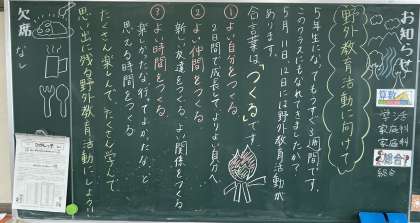 お知らせ
野外教育活動に向けて
5年生になってもうすぐ3週間です。
このクラスにもなれてきましたか?
5月11日、12日には野外教育活動が
あります。
合言葉は、「つくる」です。
①よい自分をつくる
2日間で成長して、よりよい自分へ
②よい仲間をつくる
新しい友達をつくる よい関係をつくる
③よい時間をつくる
楽しかったな、行ってよかったな、と
思える時間をつくる
たくさん楽しんで、たくさん学んで、
思い出に残る野外教育活動にしよう!!
算数
学活
家庭科
家庭科
総合
総合
欠席
なし